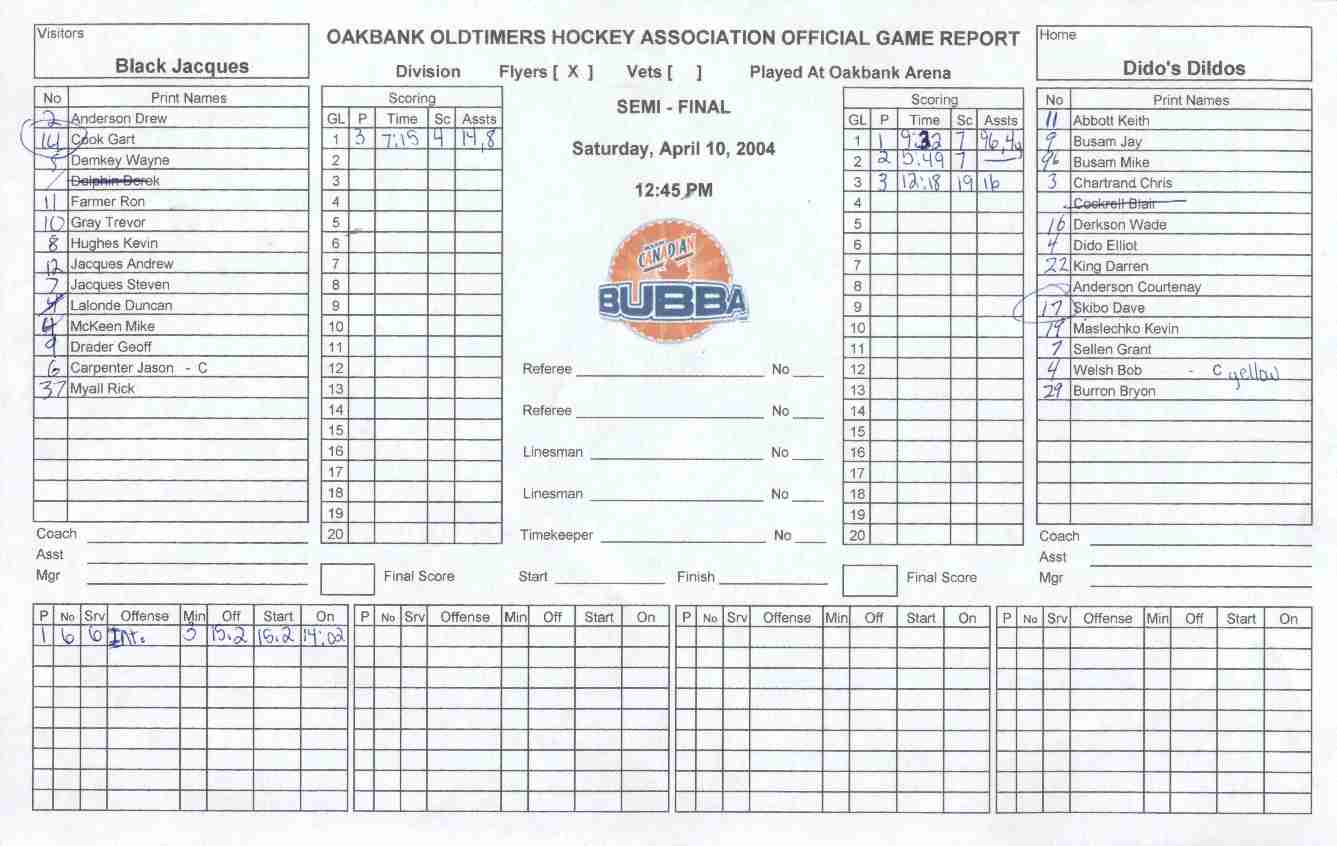 Visitors
Black Jacques
OAKBANK OLDTIMERS HOCKEY ASSOCIATION OFFICIAL GAME REPORT
Division Flyers [ X ] Vets [ ] Played At Oakbank Arena
Home
Dido's Dildos
SEMI - FINAL
Saturday, April 10, 2004
12:45 PM
CANADIAN
BUBBA
No Print Names
2 Anderson Drew
14 Cook Gart
5 Demkey Wayne
Dolphin Derek
11 Farmer Ron
10 Gray Trevor
8 Hughes Kevin
12 Jacques Andrew
7 Jacques Steven
Lalonde Duncan
4 McKeen Mike
9 Drader Geoff
6 Carpenter Jason - C
37 Myall Rick
Coach
Asst
Mgr
Scoring
GL P Time Sc Assts
1 3 7:15 4 14,8
2
3
4
5
6
7
8
9
10
11
12
13
14
15
16
17
18
19
20
Final Score
Referee No
Referee No
Linesman No
Linesman No
Timekeeper No
Start Finish
Scoring
GL P Time Sc Assts
1 1 9:32 7 96,4y
2 2 5:49 7
3 3 12:18 19 16
4
5
6
7
8
9
10
11
12
13
14
15
16
17
18
19
20
Final Score
No Print Names
11 Abbott Keith
9 Busam Jay
96 Busam Mike
3 Chartrand Chris
Cockrell Blair
16 Derkson Wade
4 Dido Elliot
22 King Darren
Anderson Courtenay
17 Skibo Dave
19 Maslechko Kevin
7 Sellen Grant
4 Welsh Bob - C yellow
29 Burron Bryon
Coach
Asst
Mgr
P No Srv Offense Min Off Start On
1 6 6 Int. 3 15.2 15.2 14:02
P No Srv Offense Min Off Start On
P No Srv Offense Min Off Start On
P No Srv Offense Min Off Start On